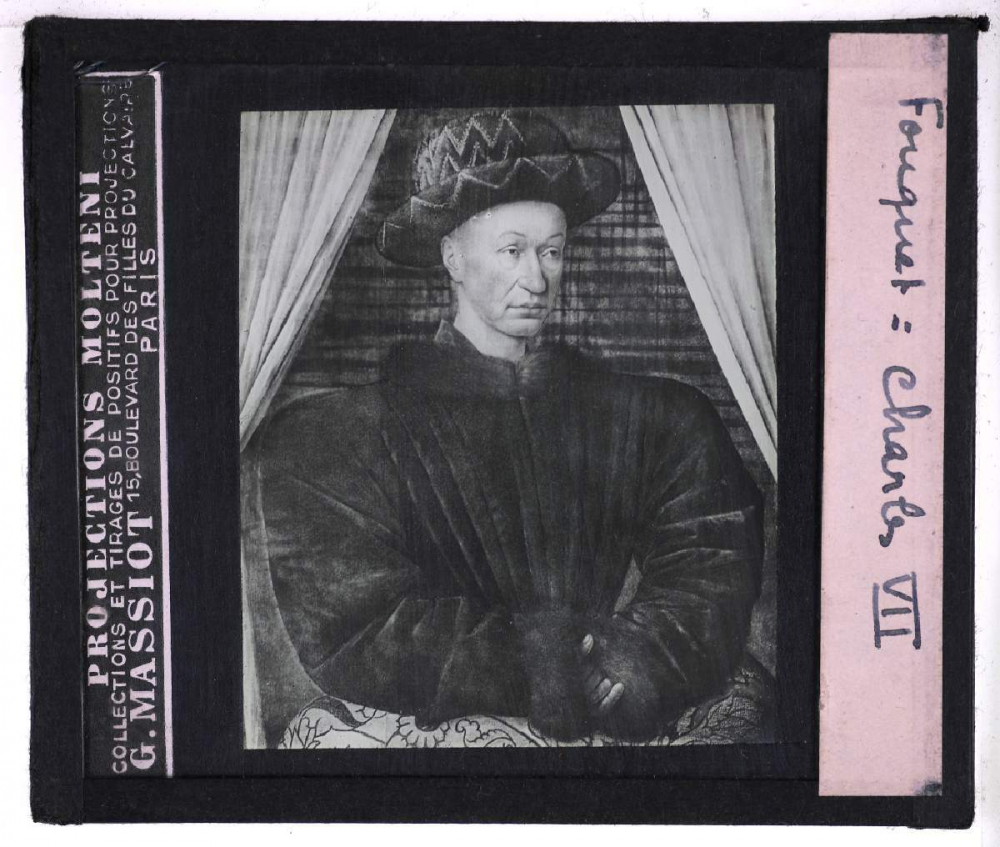 PROJECTIONS MOLTENI
COLLECTIONS ET TIRAGES DE POSITIFS POUR PROJECTIONS
G. MASSIOT 15, BOULEVARD DES FILLES DU CALVAIRE
PARIS
Fouquet : Charles VII